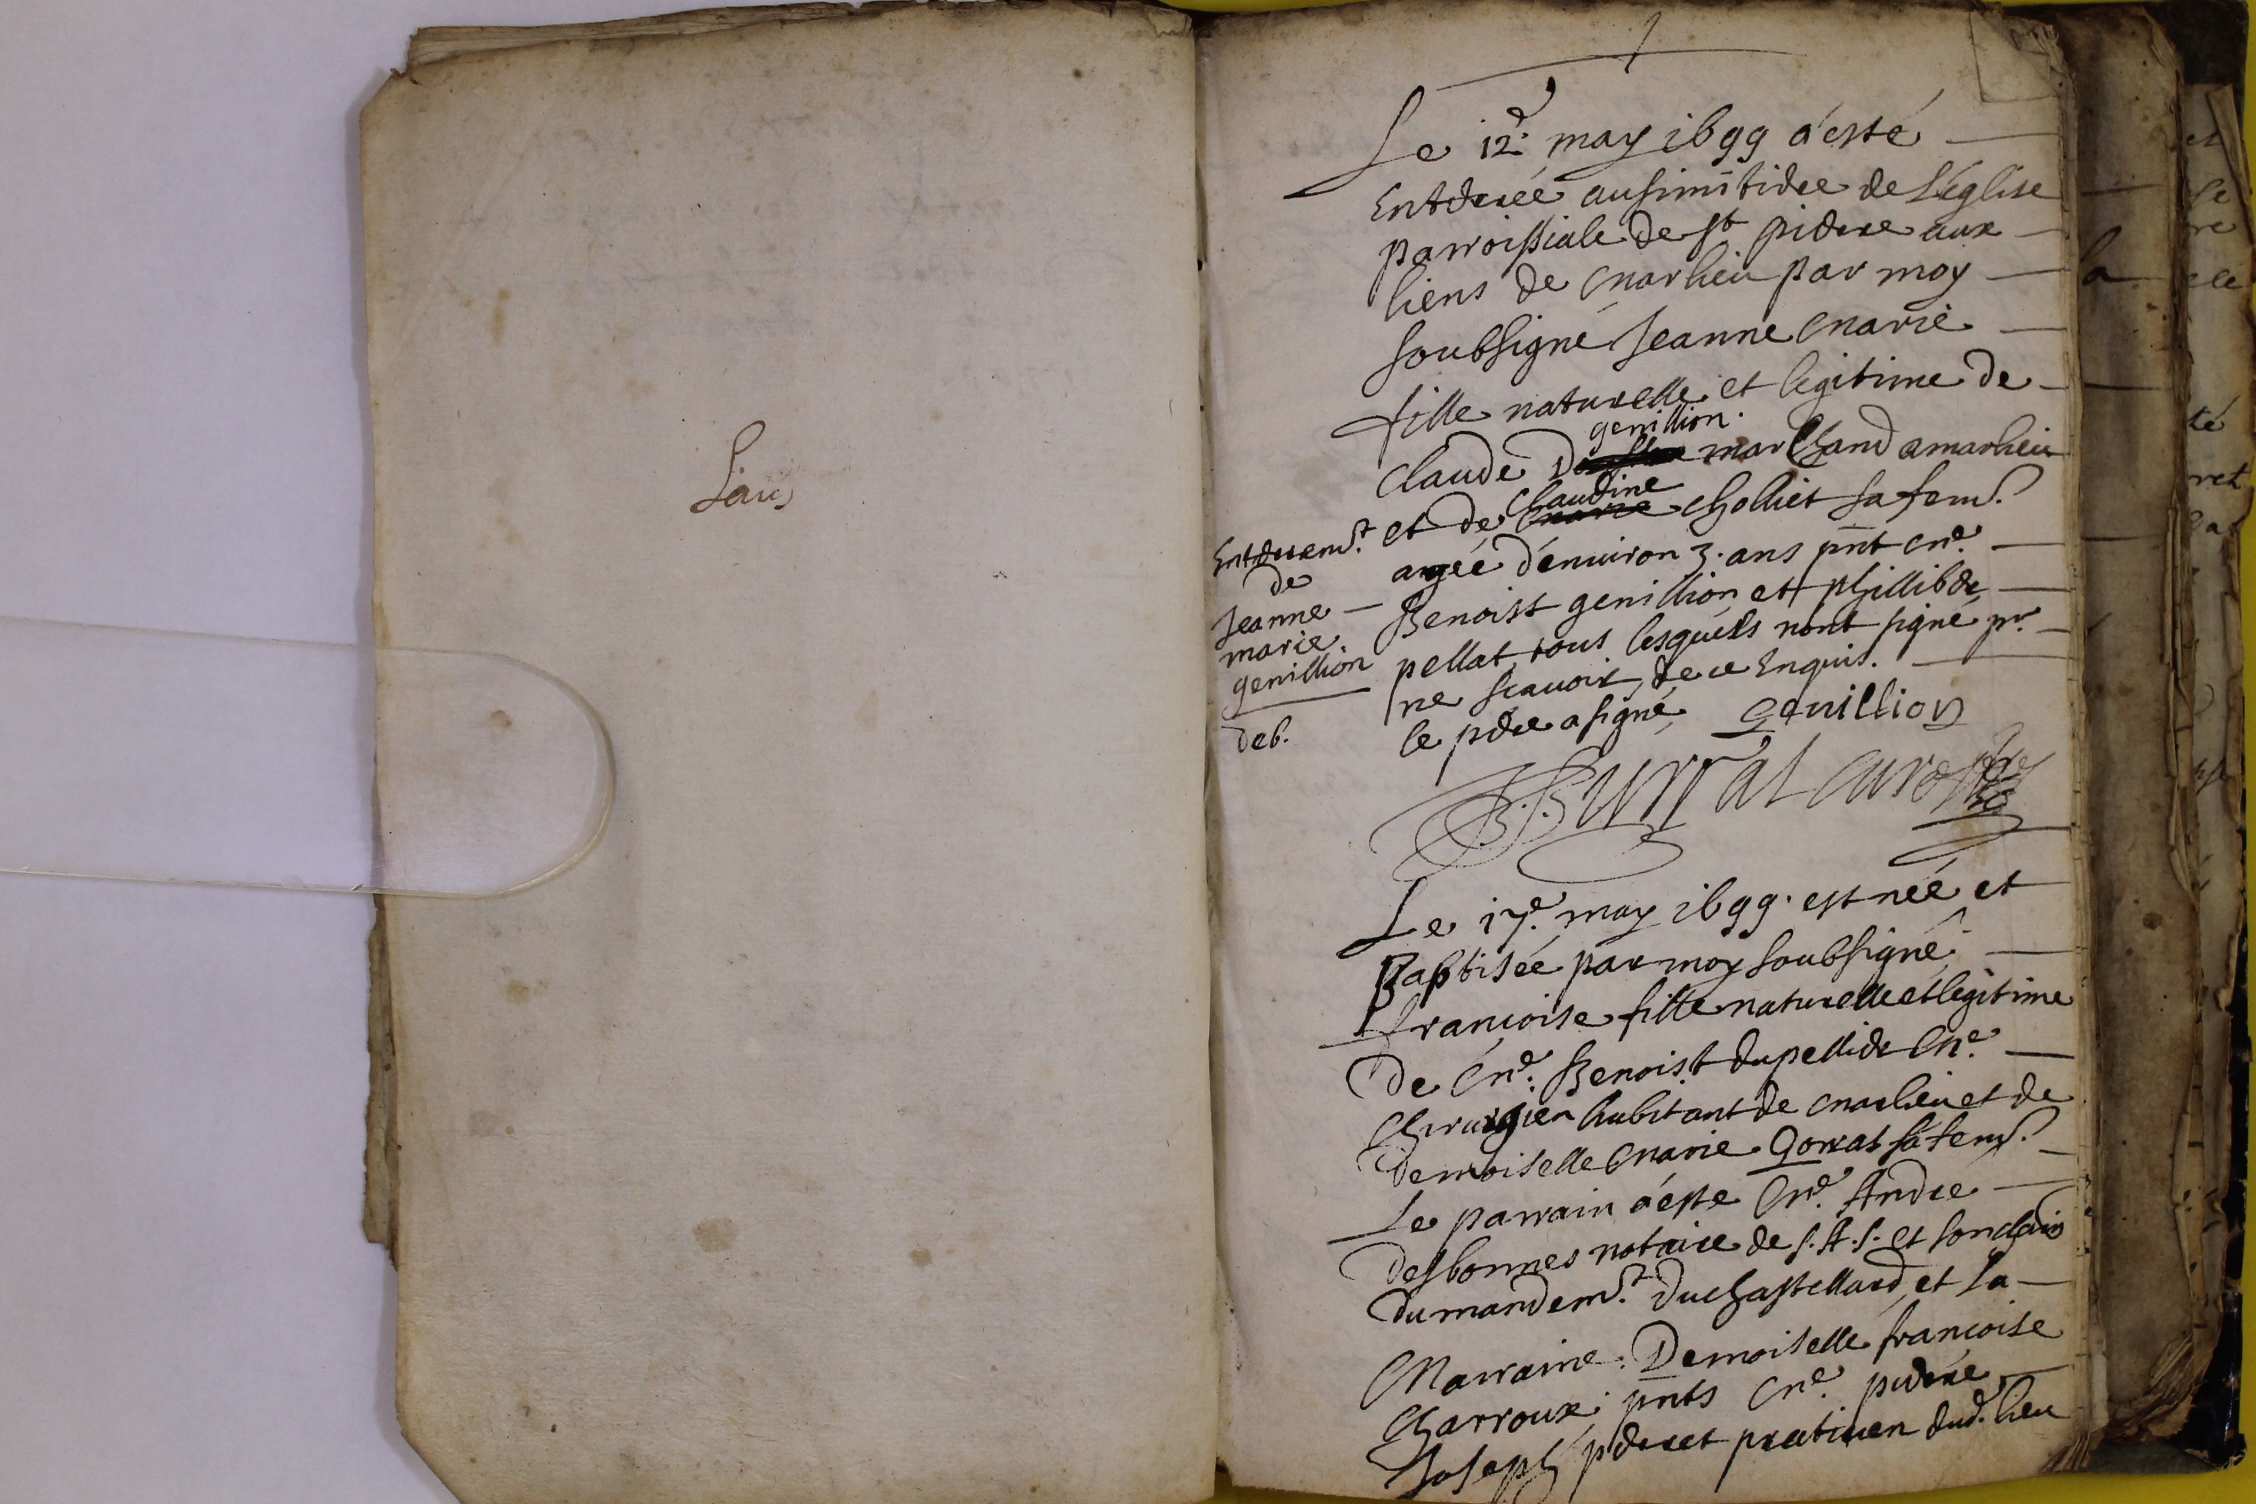 Laus
Le 12e. may 1699 a esté
Enterrée au simitiere de L'église
parroissiale de st pierre aux
liens de Marlieu par moy
soubsigné Jeanne Marie
fille naturelle et legitime de
genillion
Claude marchand a marlieu
Claudine
et de Marie Cholliet sa fem̃.
agée d'enuiron 3. ans pñt Me.
Benoist genillion et phillibe
pellat tous lesquels nont signé pr.
ne scauoir de ce Enquis.
le pere a signé genillion
Enterrem̃t.
de
Jeanne
marie
genillion
deb.
B. Burrat curé
Le 17e. may 1699. est née et
Baptisée par moy soubsigné
francoise fille naturelle et legitime
de Me. Benoist dupellier Me.
Chirurgien habitant de marlieu et de
demoiselle Marie Gorrat sa fem̃.
Le parrain a este Me. Andre
desbonnes notaire de s.A.s. et
du mandem̃t. du chastellard et la
Marraine. Demoiselle francoise
Charroux pñts Me. pierre
Joseph perret pratitien dud. lieu